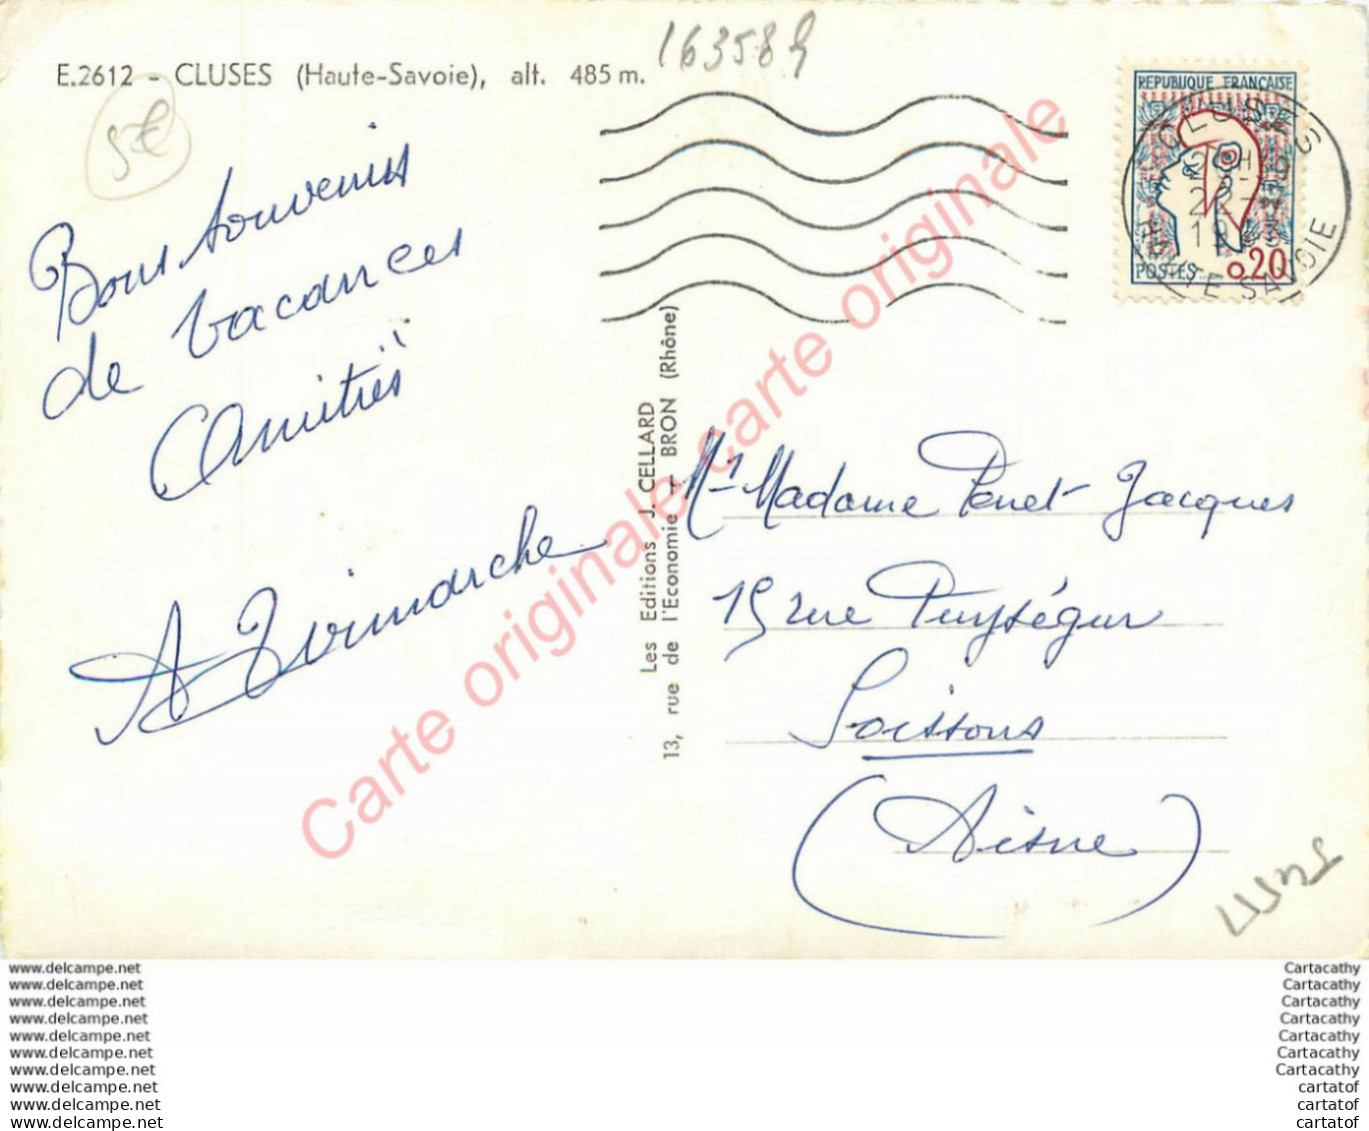 E.2612 - CLUSES (Haute-Savoie), alt. 485 m.
163589
5€
RÉPUBLIQUE FRANÇAISE
POSTES 0.20
CLUSES
HAUTE SAVOIE
Bons souvenirs
de vacances
Amitiés
Les Editions J. CELLARD
13, rue de l'Economie - BRON (Rhône)
Mr Madame Penet Jacques
15 rue Puységur
Soissons
(Aisne)
Carte originale carte originale
www.delcampe.net
www.delcampe.net
www.delcampe.net
www.delcampe.net
www.delcampe.net
www.delcampe.net
www.delcampe.net
www.delcampe.net
www.delcampe.net
www.delcampe.net
Cartacathy
Cartacathy
Cartacathy
Cartacathy
Cartacathy
Cartacathy
Cartacathy
cartatof
cartatof
cartatof